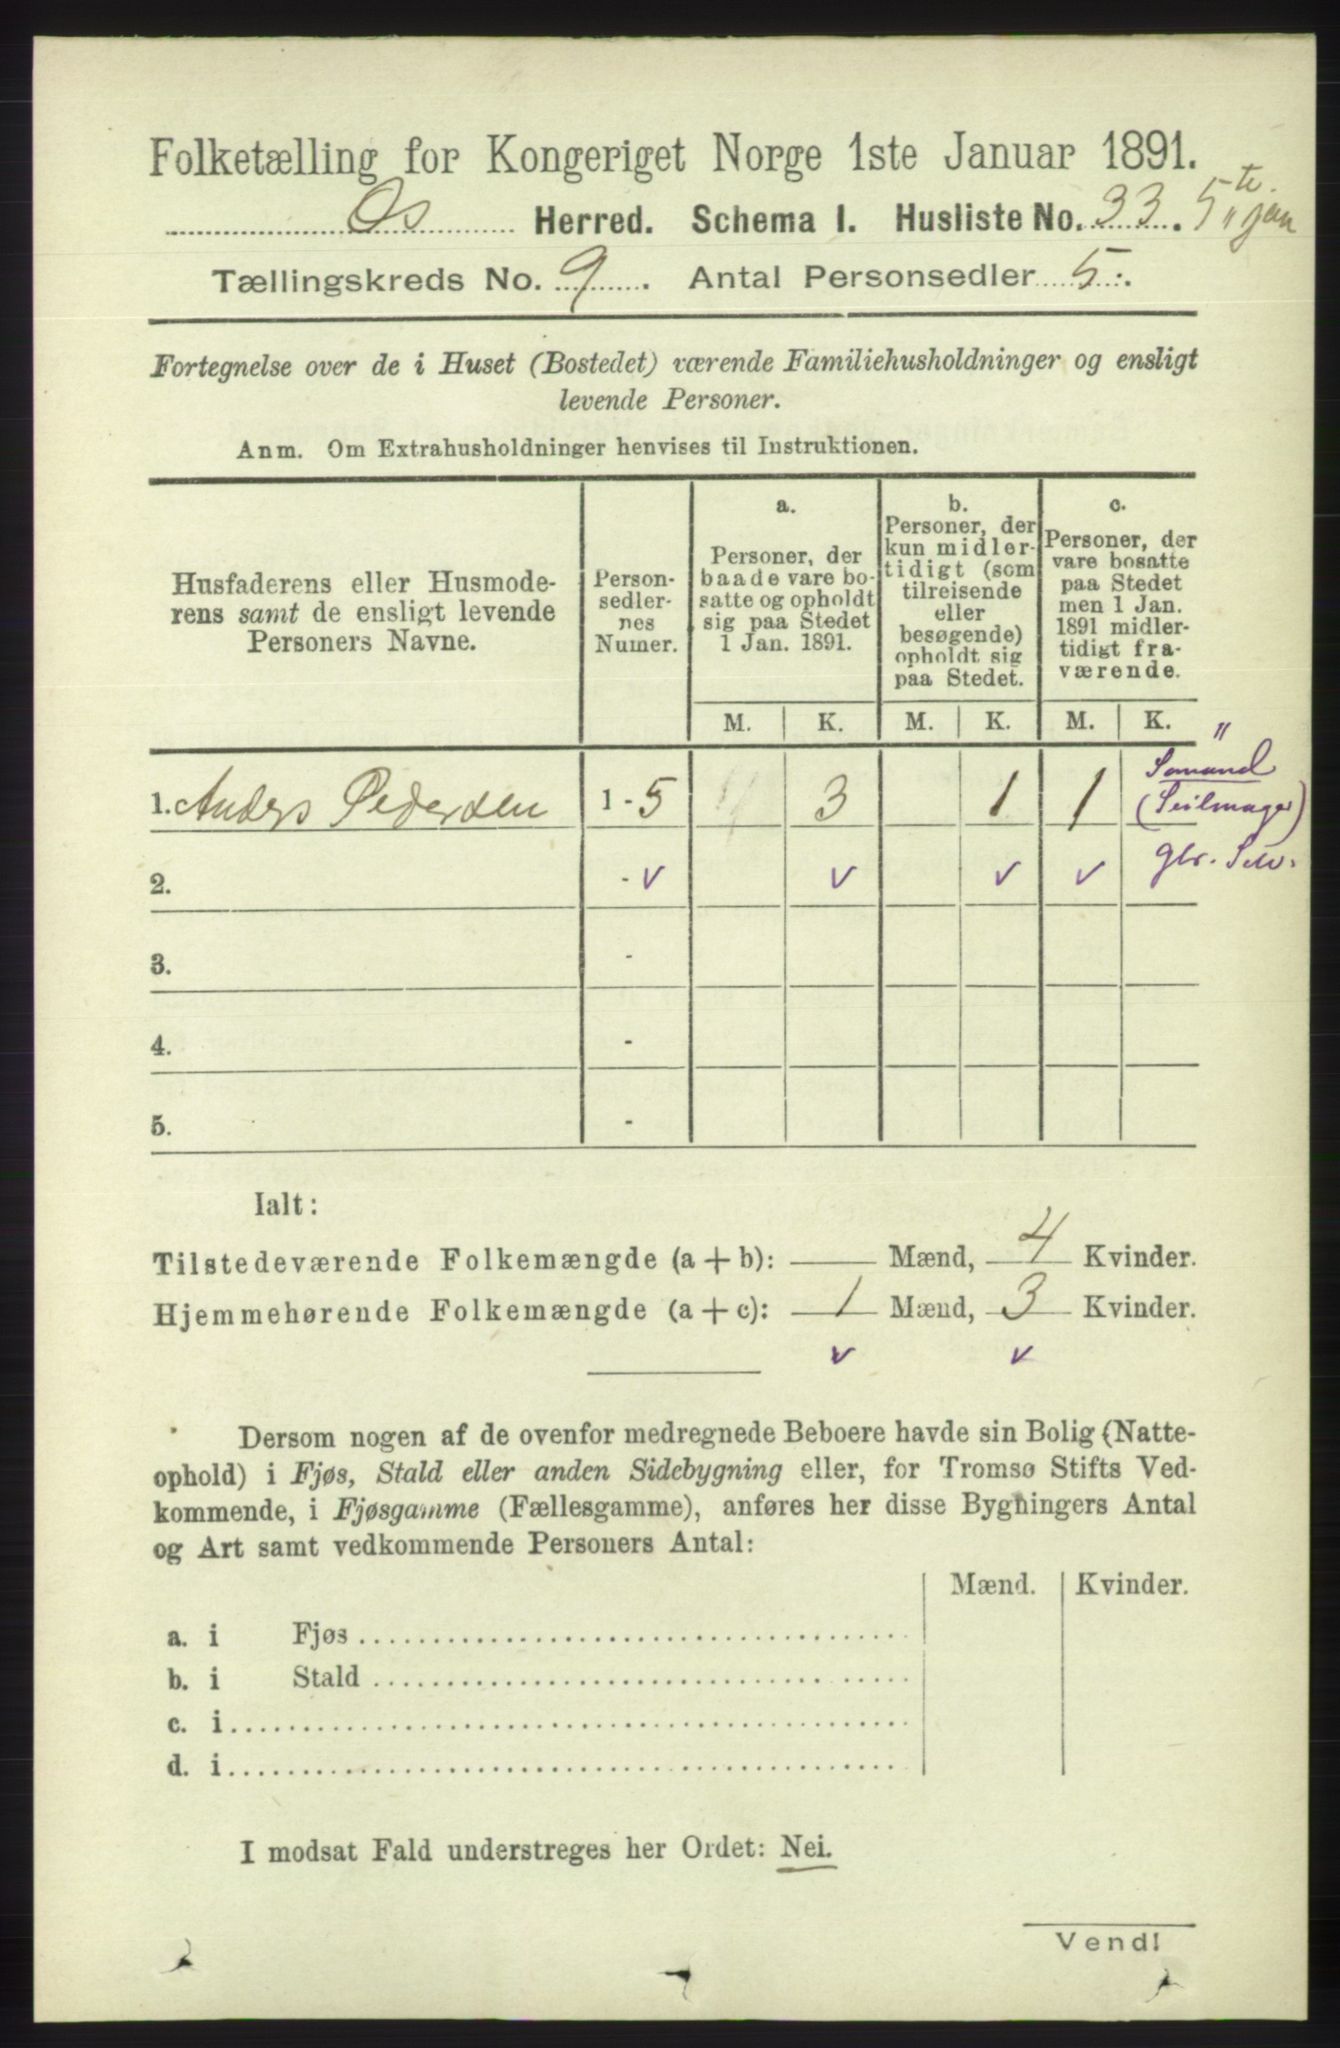 Folketælling for Kongeriget Norge 1ste Januar 1891.
Os Herred. Schema I. Husliste No. 33. 5te Jan
Tællingskreds No. 9. Antal Personsedler 5.
Fortegnelse over de i Huset (Bostedet) værende Familiehusholdninger og ensligt
levende Personer.
Anm. Om Extrahusholdninger henvises til Instruktionen.
Husfaderens eller Husmode-
rens samt de ensligt levende
Personers Navne.
Person-
sedler-
nes
Numer.
a.
Personer, der
baade vare bo-
satte og opholdt
sig paa Stedet
1 Jan. 1891.
b.
Personer, der
kun midler-
tidigt (som
tilreisende
eller
besøgende)
opholdt sig
paa Stedet.
c.
Personer, der
vare bosatte
paa Stedet
men 1 Jan.
1891 midler-
tidigt fra-
værende.
M. K. M. K. M. K.
1. Anders Pedersen 1 - 5 3 1 1 "
Sømand
(Seilmager)
2. - v v v v
3. -
4. -
5. -
Ialt:
Tilstedeværende Folkemængde (a + b): — Mænd, 4 Kvinder.
Hjemmehørende Folkemængde (a + c): 1 Mænd, 3 Kvinder.
v v
Dersom nogen af de ovenfor medregnede Beboere havde sin Bolig (Natte-
ophold) i Fjøs, Stald eller anden Sidebygning eller, for Tromsø Stifts Ved-
kommende, i Fjøsgamme (Fællesgamme), anføres her disse Bygningers Antal
og Art samt vedkommende Personers Antal:
Mænd. Kvinder.
a. i Fjøs
b. i Stald
c. i
d. i
I modsat Fald understreges her Ordet: Nei.
Vend!